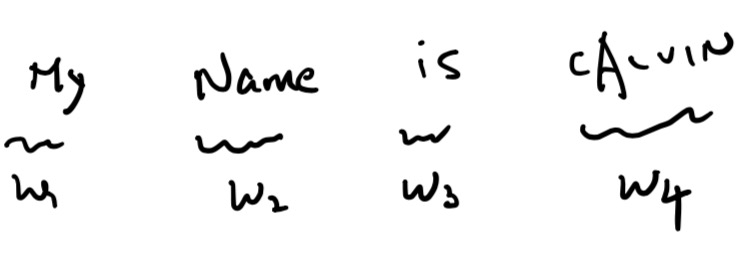 My Name is CALVIN
W1 W2 W3 W4